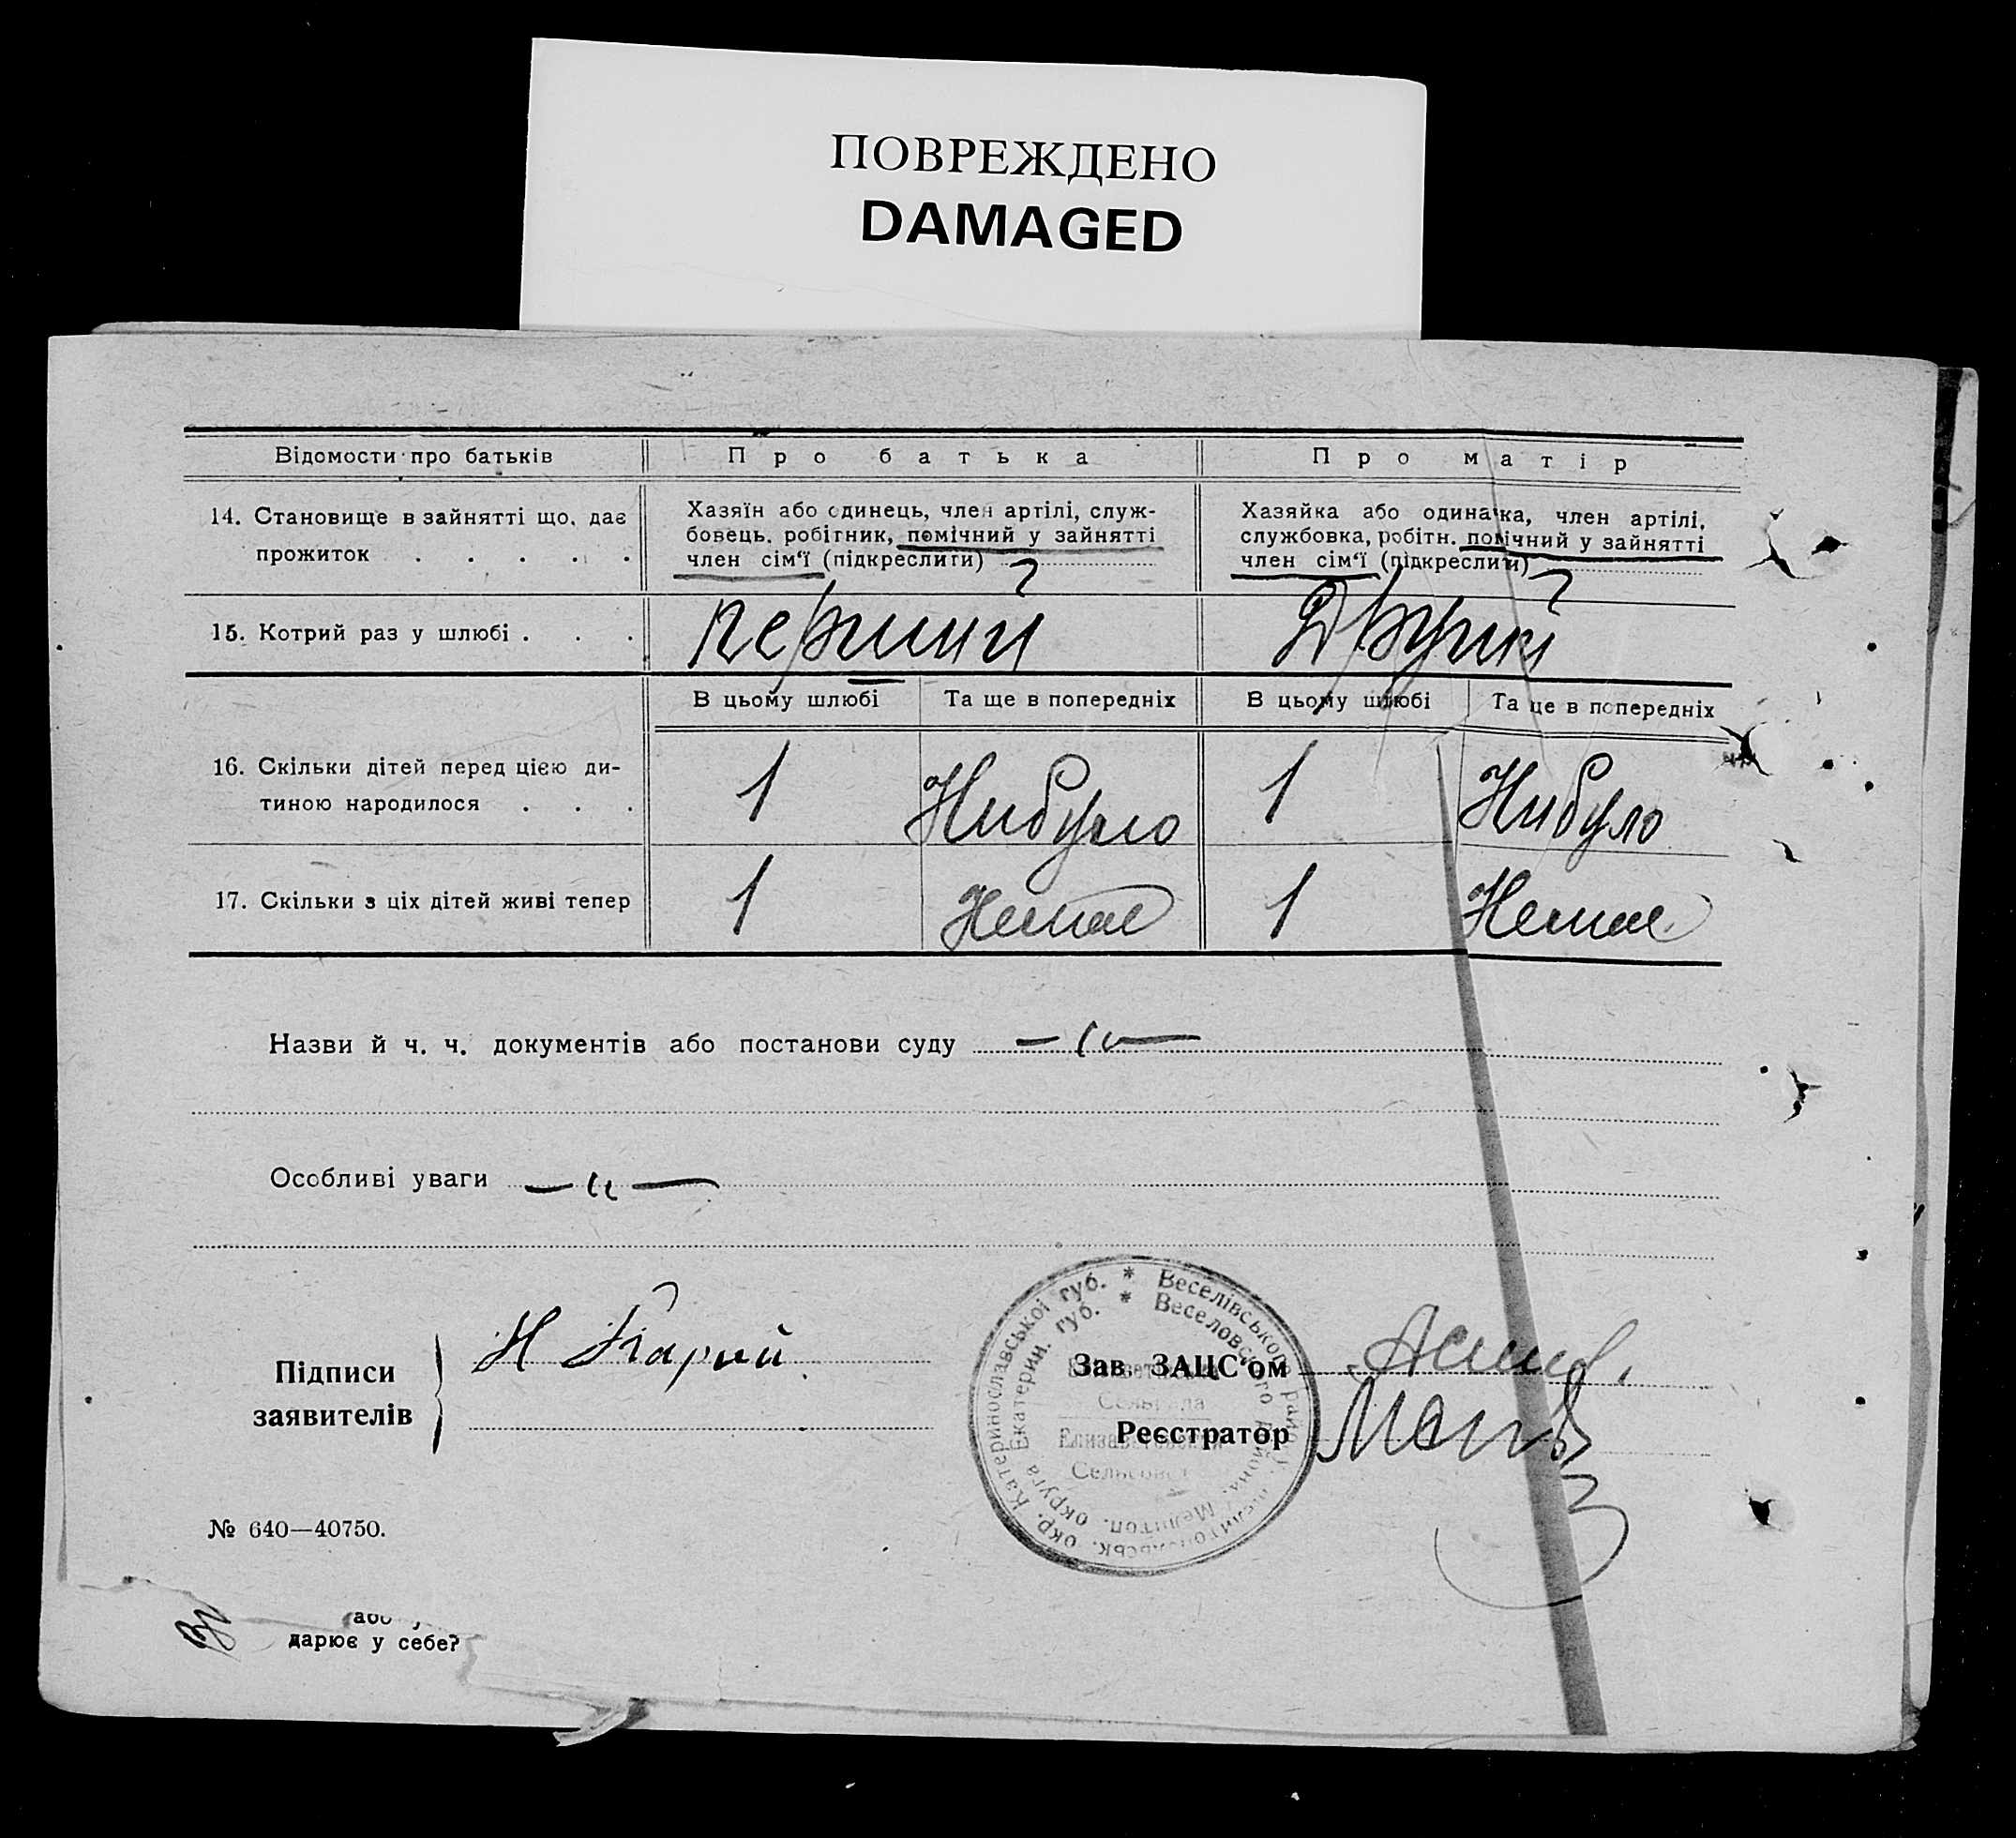 ПОВРЕЖДЕНО
DAMAGED
Відомости про батьків
Про батька
Про матір
14. Становище в зайнятті що, дає
прожиток . . . . .
Хазяїн або одинець, член артілі, служ-
бовець. робітник, помічний у зайнятті
член сім‘ї (підкреслити)
Хазяйка або одиначка, член артілі,
службовка, робітн. помічний у зайнятті
член сім‘ї (підкреслити)
15. Котрий раз у шлюбі . . .
перший
Другий
В цьому шлюбі
Та ще в попередніх
В цьому шлюбі
Та це в попередніх
16. Скільки дітей перед цією ди-
тиною народилося . . .
1
Нибуло
1
Нибуло
17. Скільки з ціх дітей живі тепер
1
Немае
1
Немае
Назви й ч. ч. документів або постанови суду — „ —
Особливі уваги — „ —
Підписи
заявителів
Н Карий
Зав ЗАЦС‘ом
Реєстратор
окр. Катеринославської губ. * Веселівського району.
округа Екатерин. губ. * Веселовского района. Мелитоп.
Сельрада
Елизаветовский
Сельсовет
№ 640—40750.
або у
дарює у себе?